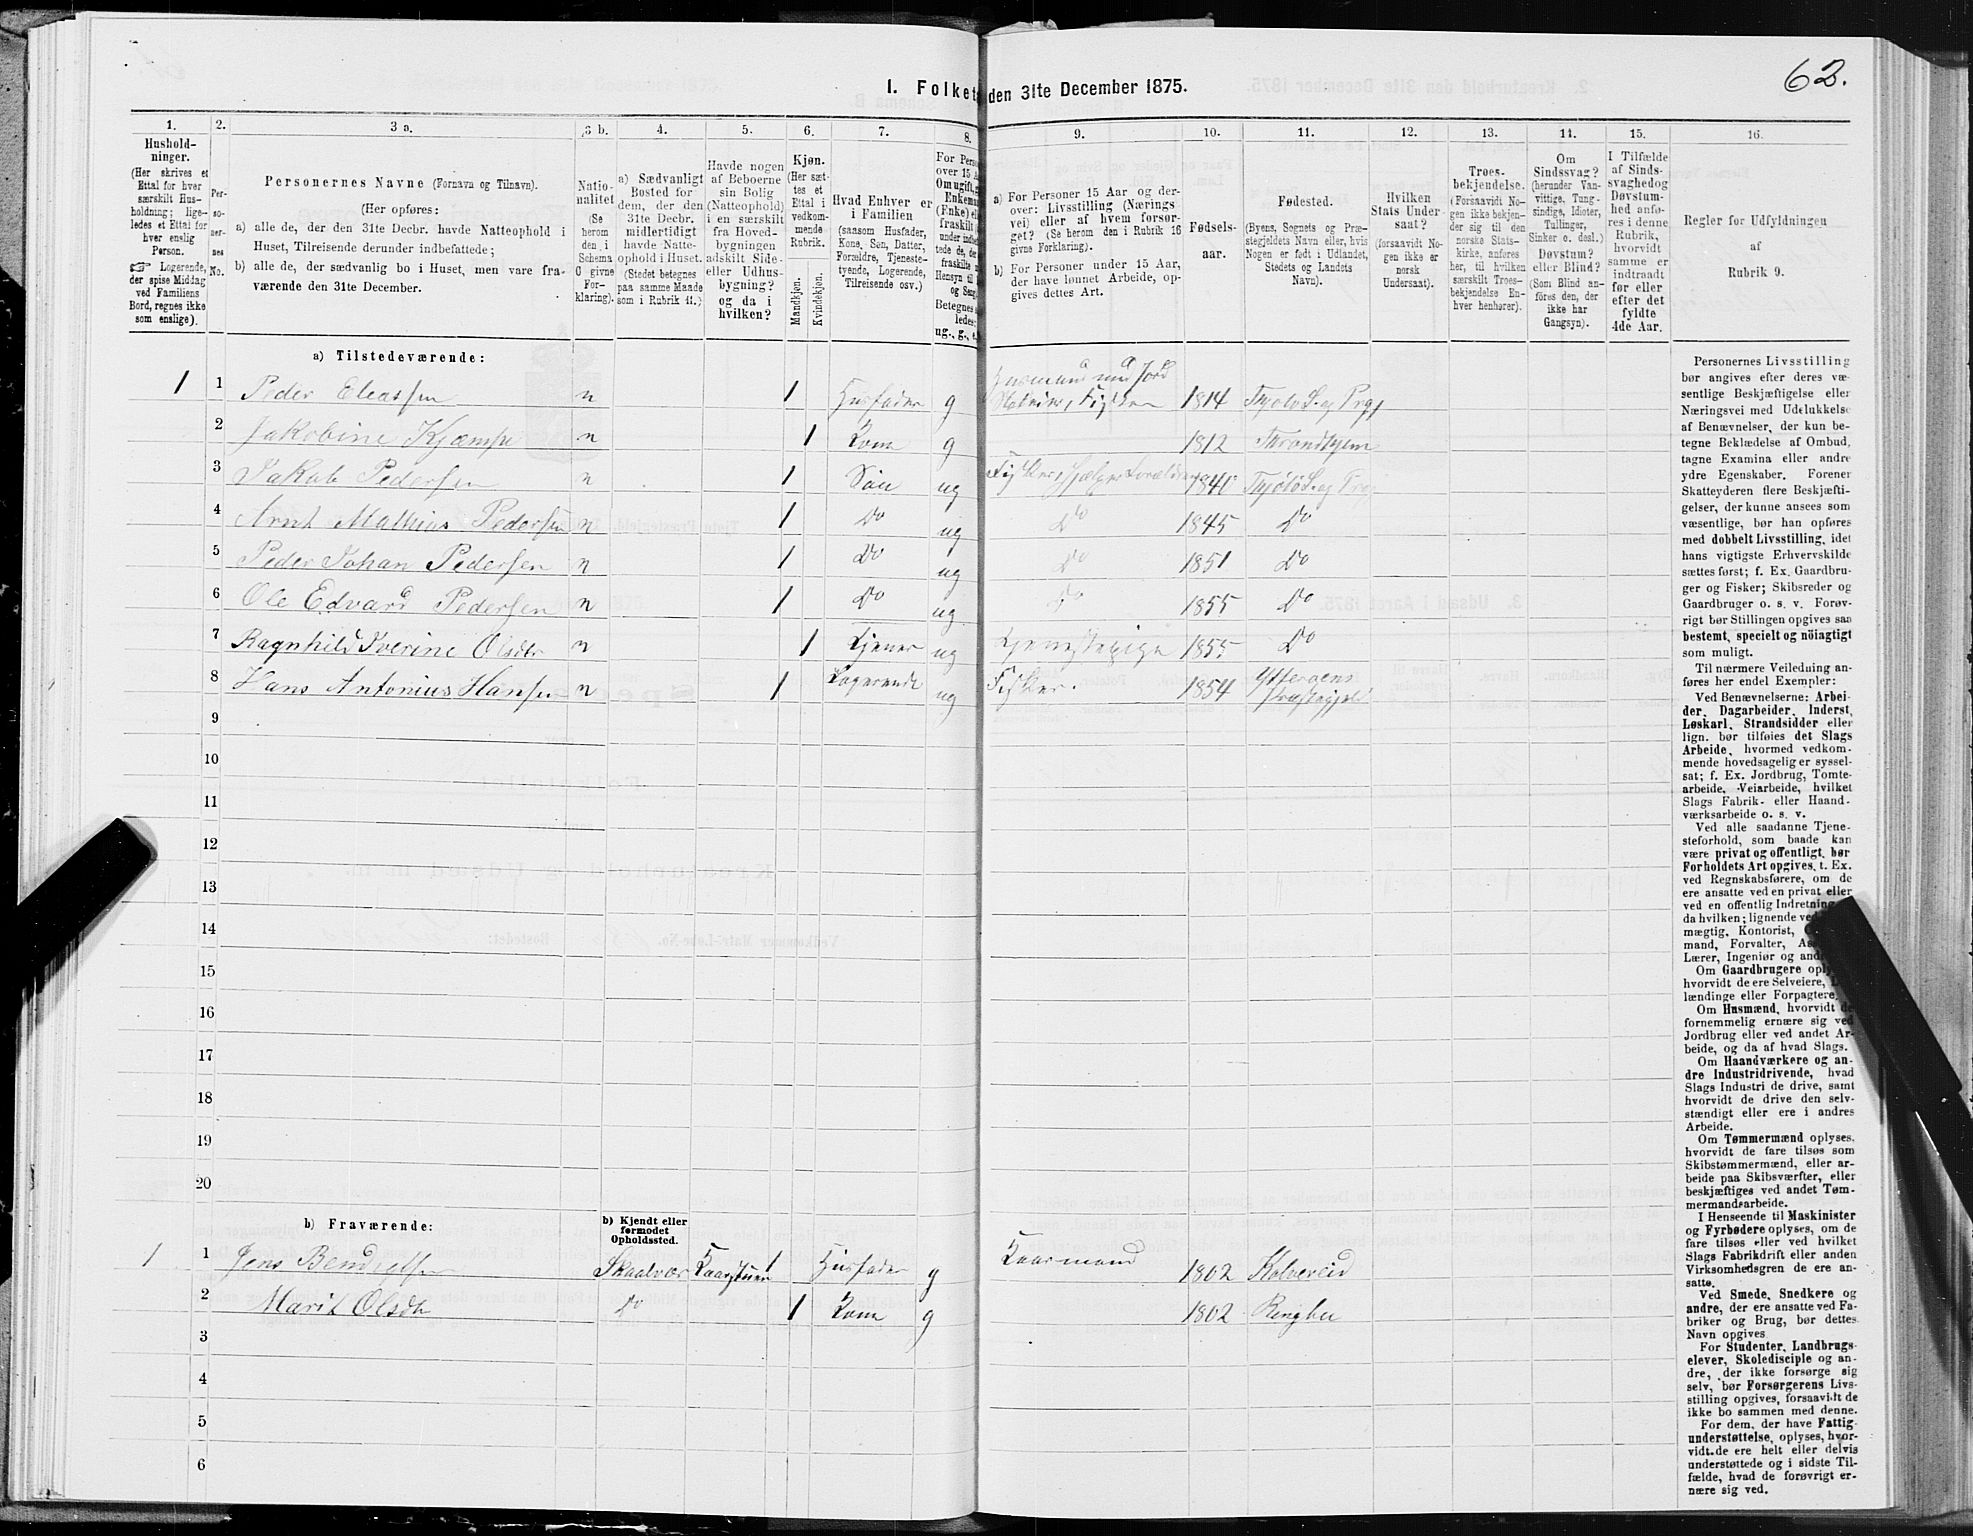 62.
1. Folket den 31te December 1875.
1. 2. 3 a. 3 b. 4. 5. 6. 7. 8. 9. 10. 11. 12. 13. 11. 15. 16.
Hushold-
ninger.
(Her skrives et
Ettal for hver
særskilt Hus-
holdning; lige-
ledes et Ettal for
hver enslig
Person.
Logerende,
der spise Middag
ved Familiens
Bord, regnes ikke
som enslige).
Per-
so-
ner-
nes
No.
Personernes Navne (Fornavn og Tilnavn).
(Her opføres:
a) alle de, der den 31te Decbr. havde Natteophold i
Huset, Tilreisende derunder indbefattede;
b) alle de, der sædvanlig bo i Huset, men vare fra-
værende den 31te December.
Natio-
nalitet
(Se
herom
den i
Schema
C givne
For-
klaring).
a) Sædvanligt
Bosted for
dem, der den
31te Decbr.
midlertidigt
havde Natte-
ophold i Huset.
(Stedet betegnes
paa samme Maade
som i Rubrik 11.)
Havde nogen
af Beboerne
sin Bolig
(Natteophold)
i en særskilt
fra Hoved-
bygningen
adskilt Side-
eller Udhus-
bygning?
og da i
hvilken?
Kjøn.
(Her sæt-
tes et
Ettal i
vedkom-
mende
Rubrik.
Mandkjøn.
Kvindekjøn.
Hvad Enhver er
i Familien
(saasom Husfader,
Kone, Søn, Datter,
Forældre, Tjeneste-
tyende, Logerende,
Tilreisende osv.)
a) For Personer 15 Aar og der-
over: Livsstilling (Nærings-
vei) eller af hvem forsør-
get? (Se herom den i Rubrik 16
givne Forklaring).
b) For Personer under 15 Aar,
der have lønnet Arbeide, op-
gives dettes Art.
Fødsels-
aar.
Fødested.
(Byens, Sognets og Præ-
stegjeldets Navn eller, hvis
Nogen er født i Udlandet,
Stedets og Landets
Navn).
Hvilken
Stats Under-
saat?
(forsaavidt No-
gen ikke er
norsk
Undersaat).
Troes-
bekjendelse.
(Forsaavidt No-
gen ikke bekjen-
der sig til den
norske Stats-
kirke, anføres
her, til hvilken
særskilt Troes-
bekjendelse En-
hver henhører).
Om
Sindssvag?
(herunder Van-
vittige, Tung-
sindige, Idioter,
Tullinger,
Sinker o. desl.)
Døvstum?
eller Blind?
(Som Blind an-
føres den, der
ikke har
Gangsyn).
I Tilfælde
af Sinds-
svaghed og
Døvstum-
hed anfø-
res i denne
Rubrik,
hvorvidt
samme er
indtraadt
før eller
efter det
fyldte
4de Aar.
Regler for Udfyldningen
af
Rubrik 9.
a) Tilstedeværende:
1 1 Peder Eleassen n 1 Husfader g Husmand med Jord 1814
2 Jakobine Kjæmpe n 1 Kone g 1812 Throndhjem
3 Jakob Pedersen n 1 Søn ug 1840
4 Arnt Mathius Pedersen n 1 Do ug Do 1845 Do
5 Peder Johan Pedersen n 1 Do ug Do 1851 Do
6 Ole Edvard Pedersen n 1 Do ug Do 1855 Do
7 Ragnhild Iverine Olsdtr n 1 Tjener ug Tjenestepige 1855 Do
8 Hans Antonius Hansen n 1 Logerende ug Fisker. 1854
9
10
11
12
13
14
15
16
17
18
19
20
b) Fraværende:
b) Kjendt eller
formodet
Opholdssted.
1 1 Jens Bendigtsen Skaalvær Kaarstuen 1 Husfader g Kaarmand 1802 Kolvereid
2 Marit Olsdtr Do 1 Kone g 1802 Ringbu
3
4
5
6
Personernes Livsstilling
bør angives efter deres væ-
sentlige Beskjæftigelse eller
Næringsvei med Udelukkelse
af Benævnelser, der kun be-
tegne Beklædelse af Ombud,
tagne Examina eller andre
ydre Egenskaber. Forener
Skatteyderen flere Beskjæfti-
gelser, der kunne ansees som
væsentlige, bør han opføres
med dobbelt Livsstilling, idet
hans vigtigste Erhvervskilde
sættes først; f. Ex. Gaardbru-
ger og Fisker; Skibsreder og
Gaardbruger o. s. v. Forøv-
rigt bør Stillingen opgives saa
bestemt, specielt og nöiagtigt
som muligt.
Til nærmere Veiledning an-
føres her endel Exempler:
Ved Benævnelserne: Arbei-
der, Dagarbeider, Inderst,
Løskarl, Strandsidder eller
lign. bør tilføies det Slags
Arbeide, hvormed vedkom-
mende hovedsagelig er syssel-
sat; f. Ex. Jordbrug, Tomte-
arbeide, Veiarbeide, hvilket
Slags Fabrik- eller Haand-
værksarbeide o. s. v.
Ved alle saadanne Tjene-
steforhold, som baade kan
være privat og offentligt, bør
Forholdets Art opgives, t. Ex.
ved Regnskabsførere, om de
ere ansatte ved en privat eller
ved en offentlig Indretning
da hvilken; lignende ved
mægtig, Kontorist,
mand, Forvalter,
Lærer, Ingeniør og
Om Gaardbrugere
hvorvidt de ere Selveiere,
lændinge eller Forpagtere.
Om Husmænd, hvorvidt de
fornemmelig ernære sig ved
Jordbrug eller ved andet Ar-
beide, og da af hvad Slags.
Om Haandværkere og an-
dre Industridrivende, hvad
Slags Industri de drive, samt
hvorvidt de drive den selv-
stændigt eller ere i andres
Arbeide.
Om Tømmermænd oplyses,
hvorvidt de fare tilsøs som
Skibstømmermænd, eller ar-
beide paa Skibsværfter, eller
beskjæftiges ved andet Tøm-
mermandsarbeide.
I Henseende til Maskinister
og Fyrbødere oplyses, om de
fare tilsøs eller ved hvilket
Slags Fabrikdrift eller anden
Virksomhedsgren de ere an-
satte.
Ved Smede, Snedkere og
andre, der ere ansatte ved Fa-
briker og Brug, bør dettes
Navn opgives
For Studenter, Landbrugs-
elever, Skoledisciple og an-
dre, der ikke forsørge sig
selv, bør Forsørgerens Livs-
stilling opgives, forsaavidt de
ikke bo sammen med denne.
For dem, der have Fattig-
understøttelse, oplyses, hvor-
vidt de ere helt eller delvis
understøttede og i sidste Til-
fælde, hvad de forøvrigt er-
nære sig ved.